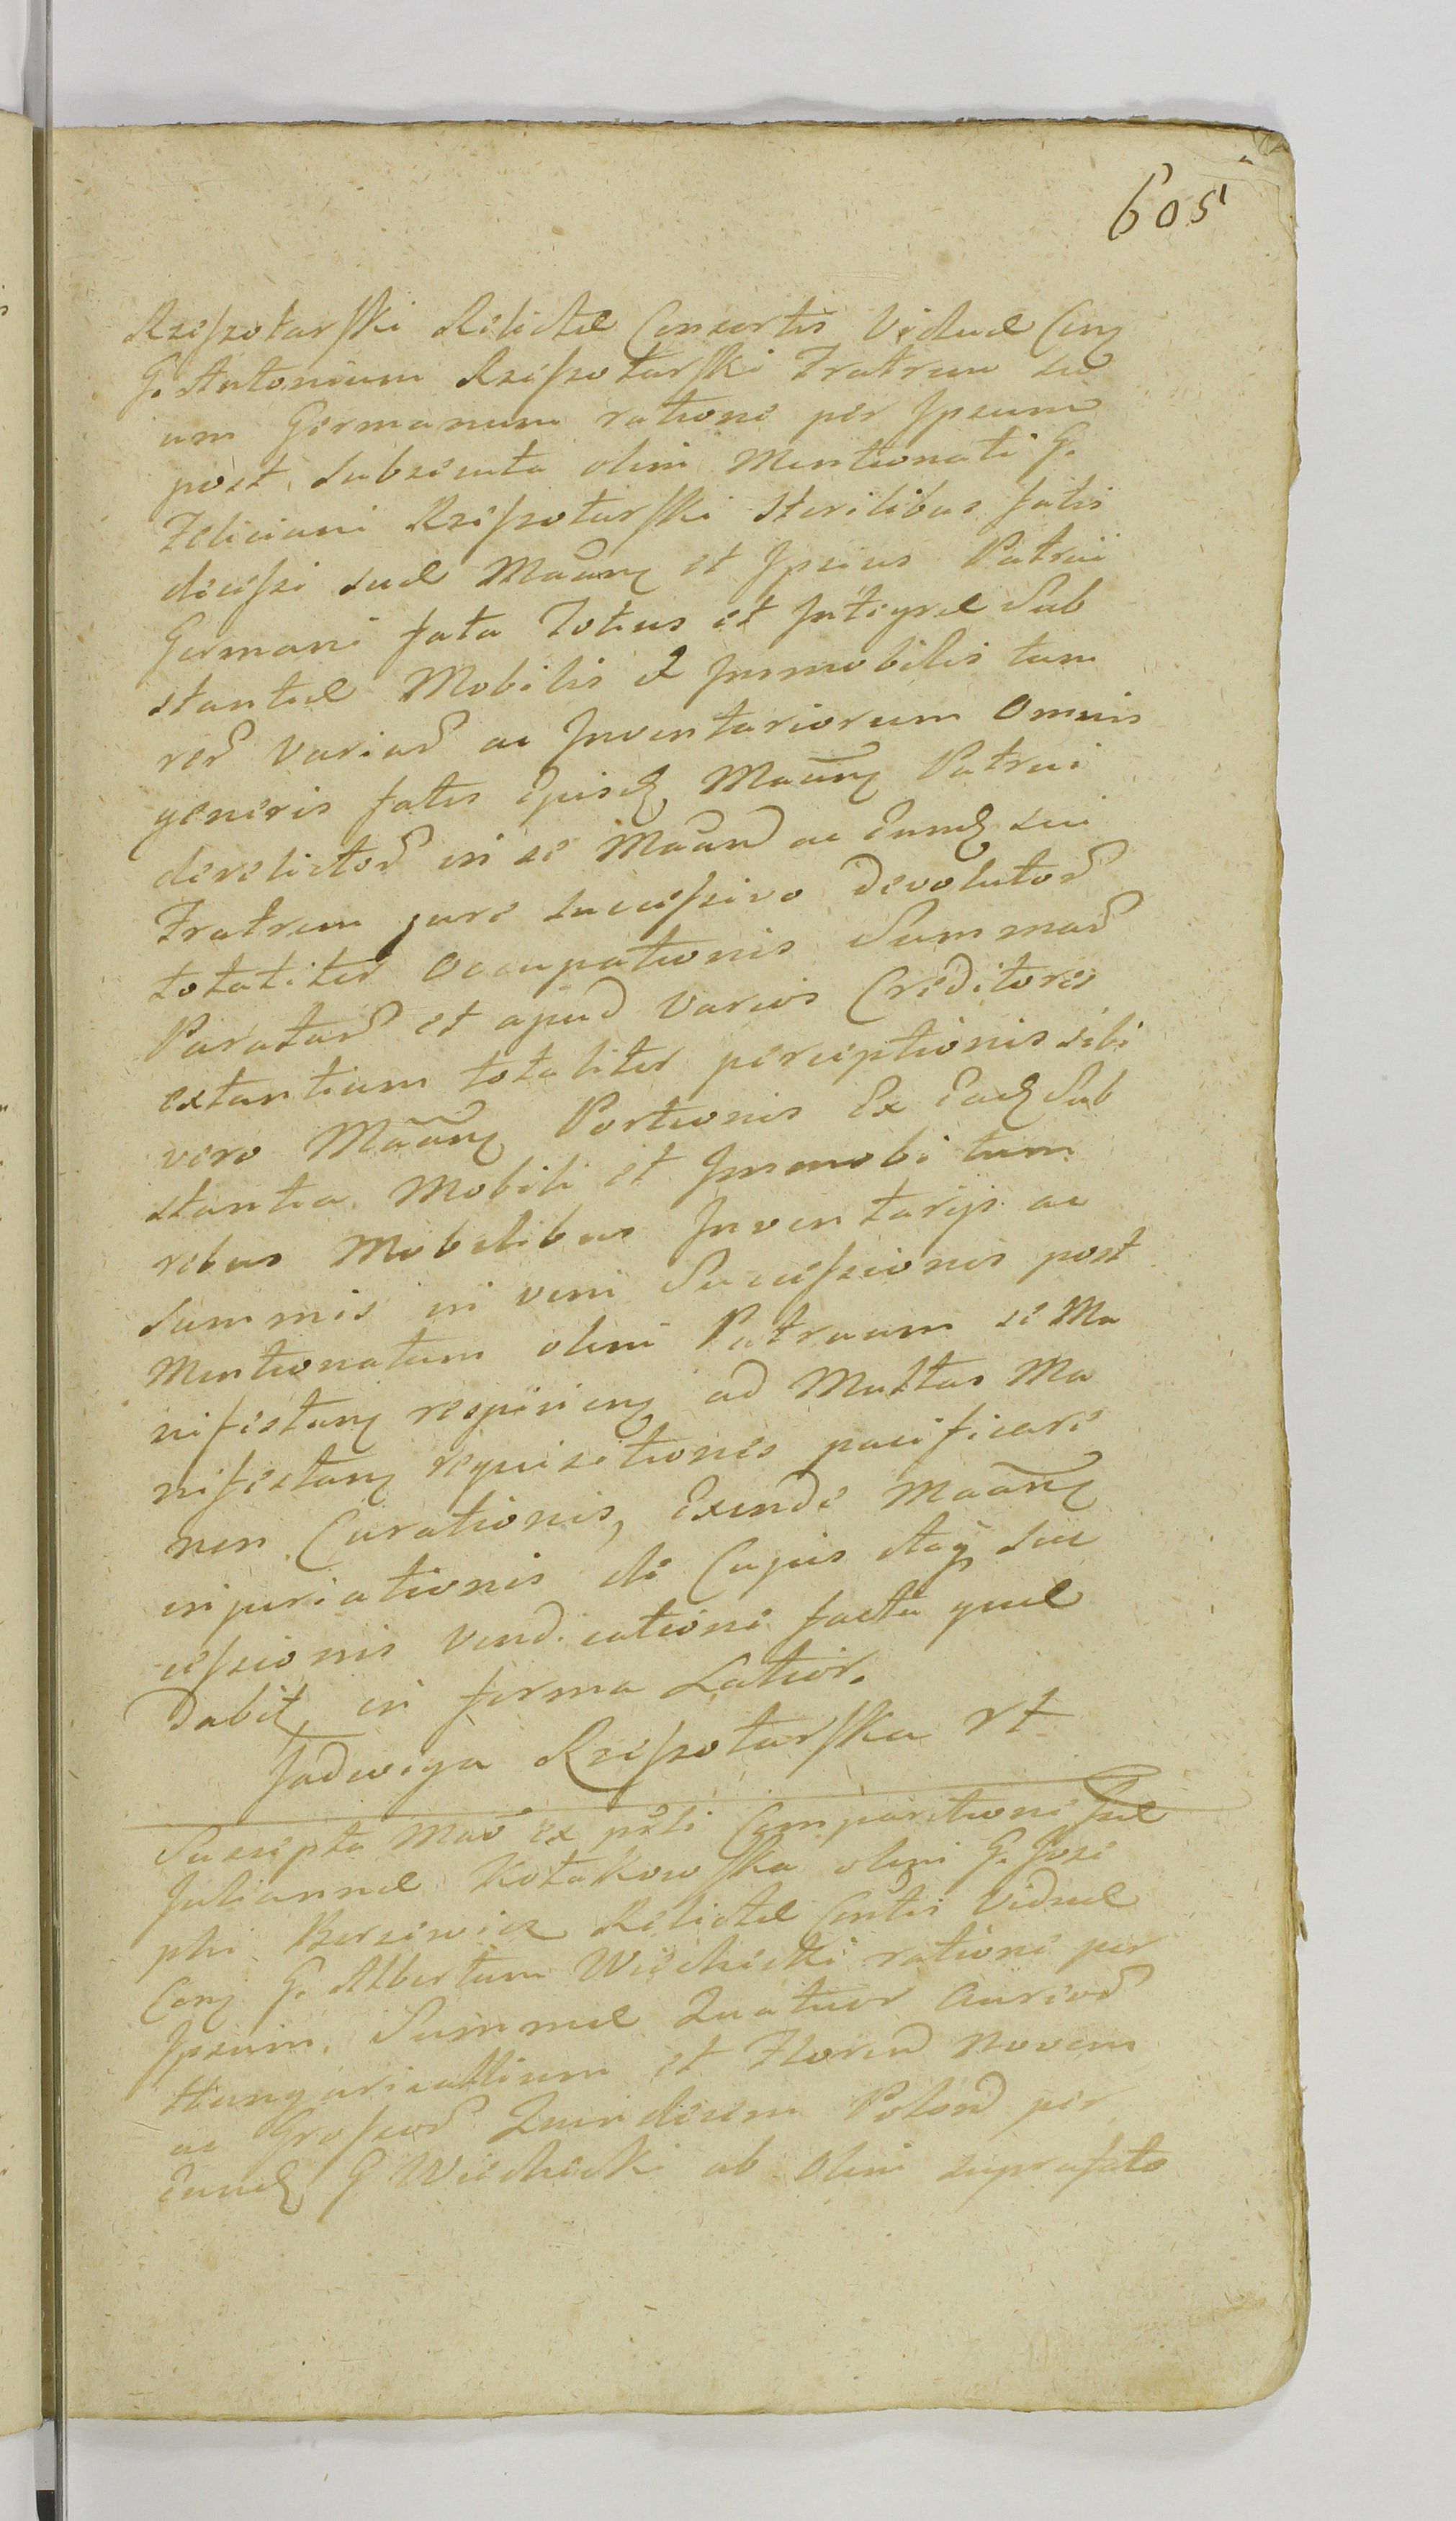 605
Rzeszotarski Relictæ Consortis Viduæ Con
G. Antonium Rzeszotarski Fratrem su
um Germanum ratione per Ipsum
post subsecuta olim Mentionati G.
Feliciani Rzeszotarski Sterilibus fatis
decessi suæ Maān et Ipsius Patrui
Germani fata Totius et Integræ Sub
stantiæ Mobilis & Immobilis tum
rer Variar ac Inventariorum Omnis
generis fatis Ejusd Maān Patrui
derelictor in se Maān ac Eund sui
Fratrem jure successivo devolutor
totaliter Occupationis Summar
Paratar et apud Varios Creditores
extantium totaliter perceptionis sibi
vero Maān Portionis Ex Ead Sub
stantia Mobili et Immobi tum
rebus Mobilibus Inventarijs ac
Summis in vim Successionis post
Mentionatum olim Patruum se Ma
nifestan respicien ad Multas Ma
nifestan requisitiones pacificare
non Curationis, Exinde Maān
injuriationis de Cujus stq̃ suc
cessionis vendicatione facta quæ
dabit, in forma Latior.
Jadwiga Rzeszotarska rt
Suscepta Mão ex pñti Comparitione Gsæ
Juliannæ Kołakowska olim G. Jose
phi Berzewicz Relictæ Cõrtis Viduæ
Con G. Albertum Wiechecki ratione per
Ipsum, Summæ Quatuor Aureor
Hungaricalium et Floren Novem
ac Grossor Quindecim Polon per
Eund G Wiechecki ab Olim suprafato